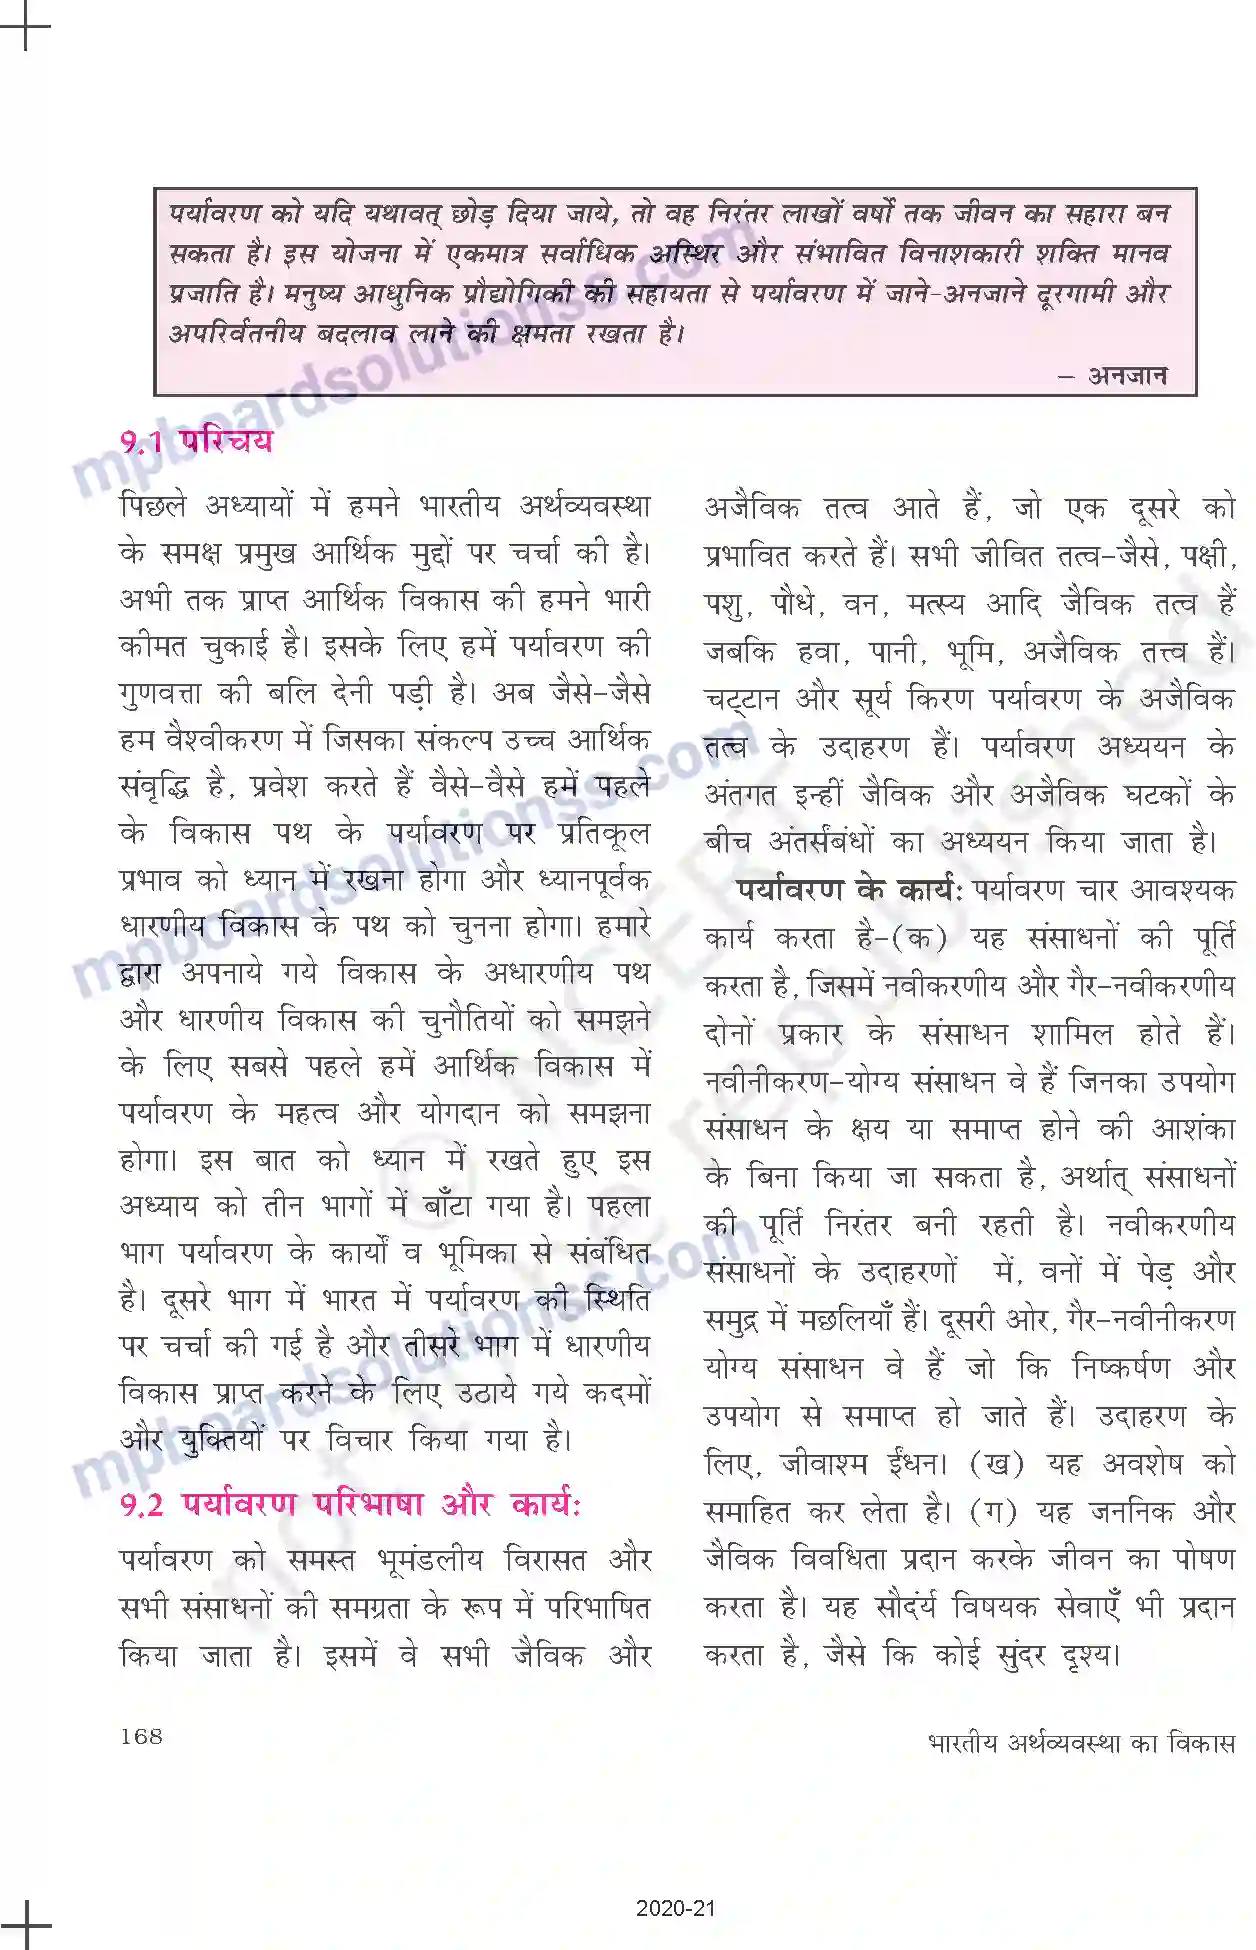 पर्यावरण को यदि यथावत् छोड़ दिया जाये, तो वह निरंतर लाखों वर्षों तक जीवन का सहारा बन
सकता है। इस योजना में एकमात्र सर्वाधिक अस्थिर और संभावित विनाशकारी शक्ति मानव
प्रजाति है। मनुष्य आधुनिक प्रौद्योगिकी की सहायता से पर्यावरण में जाने-अनजाने दूरगामी और
अपरिर्वतनीय बदलाव लाने की क्षमता रखता है।
– अनजान
9.1 परिचय
पिछले अध्यायों में हमने भारतीय अर्थव्यवस्था
के समक्ष प्रमुख आर्थिक मुद्दों पर चर्चा की है।
अभी तक प्राप्त आर्थिक विकास की हमने भारी
कीमत चुकाई है। इसके लिए हमें पर्यावरण की
गुणवत्ता की बलि देनी पड़ी है। अब जैसे-जैसे
हम वैश्वीकरण में जिसका संकल्प उच्च आर्थिक
संवृद्धि है, प्रवेश करते हैं वैसे-वैसे हमें पहले
के विकास पथ के पर्यावरण पर प्रतिकूल
प्रभाव को ध्यान में रखना होगा और ध्यानपूर्वक
धारणीय विकास के पथ को चुनना होगा। हमारे
द्वारा अपनाये गये विकास के अधारणीय पथ
और धारणीय विकास की चुनौतियों को समझने
के लिए सबसे पहले हमें आर्थिक विकास में
पर्यावरण के महत्व और योगदान को समझना
होगा। इस बात को ध्यान में रखते हुए इस
अध्याय को तीन भागों में बाँटा गया है। पहला
भाग पर्यावरण के कार्यों व भूमिका से संबंधित
है। दूसरे भाग में भारत में पर्यावरण की स्थिति
पर चर्चा की गई है और तीसरे भाग में धारणीय
विकास प्राप्त करने के लिए उठाये गये कदमों
और युक्तियों पर विचार किया गया है।
9.2 पर्यावरण परिभाषा और कार्य:
पर्यावरण को समस्त भूमंडलीय विरासत और
सभी संसाधनों की समग्रता के रूप में परिभाषित
किया जाता है। इसमें वे सभी जैविक और
अजैविक तत्व आते हैं, जो एक दूसरे को
प्रभावित करते हैं। सभी जीवित तत्व-जैसे, पक्षी,
पशु, पौधे, वन, मत्स्य आदि जैविक तत्व हैं
जबकि हवा, पानी, भूमि, अजैविक तत्त्व हैं।
चट्टान और सूर्य किरण पर्यावरण के अजैविक
तत्व के उदाहरण हैं। पर्यावरण अध्ययन के
अंतगत इन्हीं जैविक और अजैविक घटकों के
बीच अंतर्संबंधों का अध्ययन किया जाता है।
पर्यावरण के कार्य: पर्यावरण चार आवश्यक
कार्य करता है-(क) यह संसाधनों की पूर्ति
करता है, जिसमें नवीकरणीय और गैर-नवीकरणीय
दोनों प्रकार के संसाधन शामिल होते हैं।
नवीनीकरण-योग्य संसाधन वे हैं जिनका उपयोग
संसाधन के क्षय या समाप्त होने की आशंका
के बिना किया जा सकता है, अर्थात् संसाधनों
की पूर्ति निरंतर बनी रहती है। नवीकरणीय
संसाधनों के उदाहरणों में, वनों में पेड़ और
समुद्र में मछलियाँ हैं। दूसरी ओर, गैर-नवीनीकरण
योग्य संसाधन वे हैं जो कि निष्कर्षण और
उपयोग से समाप्त हो जाते हैं। उदाहरण के
लिए, जीवाश्म ईंधन। (ख) यह अवशेष को
समाहित कर लेता है। (ग) यह जननिक और
जैविक विवधिता प्रदान करके जीवन का पोषण
करता है। यह सौदंर्य विषयक सेवाएँ भी प्रदान
करता है, जैसे कि कोई सुंदर दृश्य।
168
भारतीय अर्थव्यवस्था का विकास
2020-21
mpboardsolutionss.com
mpboardsolutionss.com
mpboardsolutionss.com
© NCERT
not to be republished